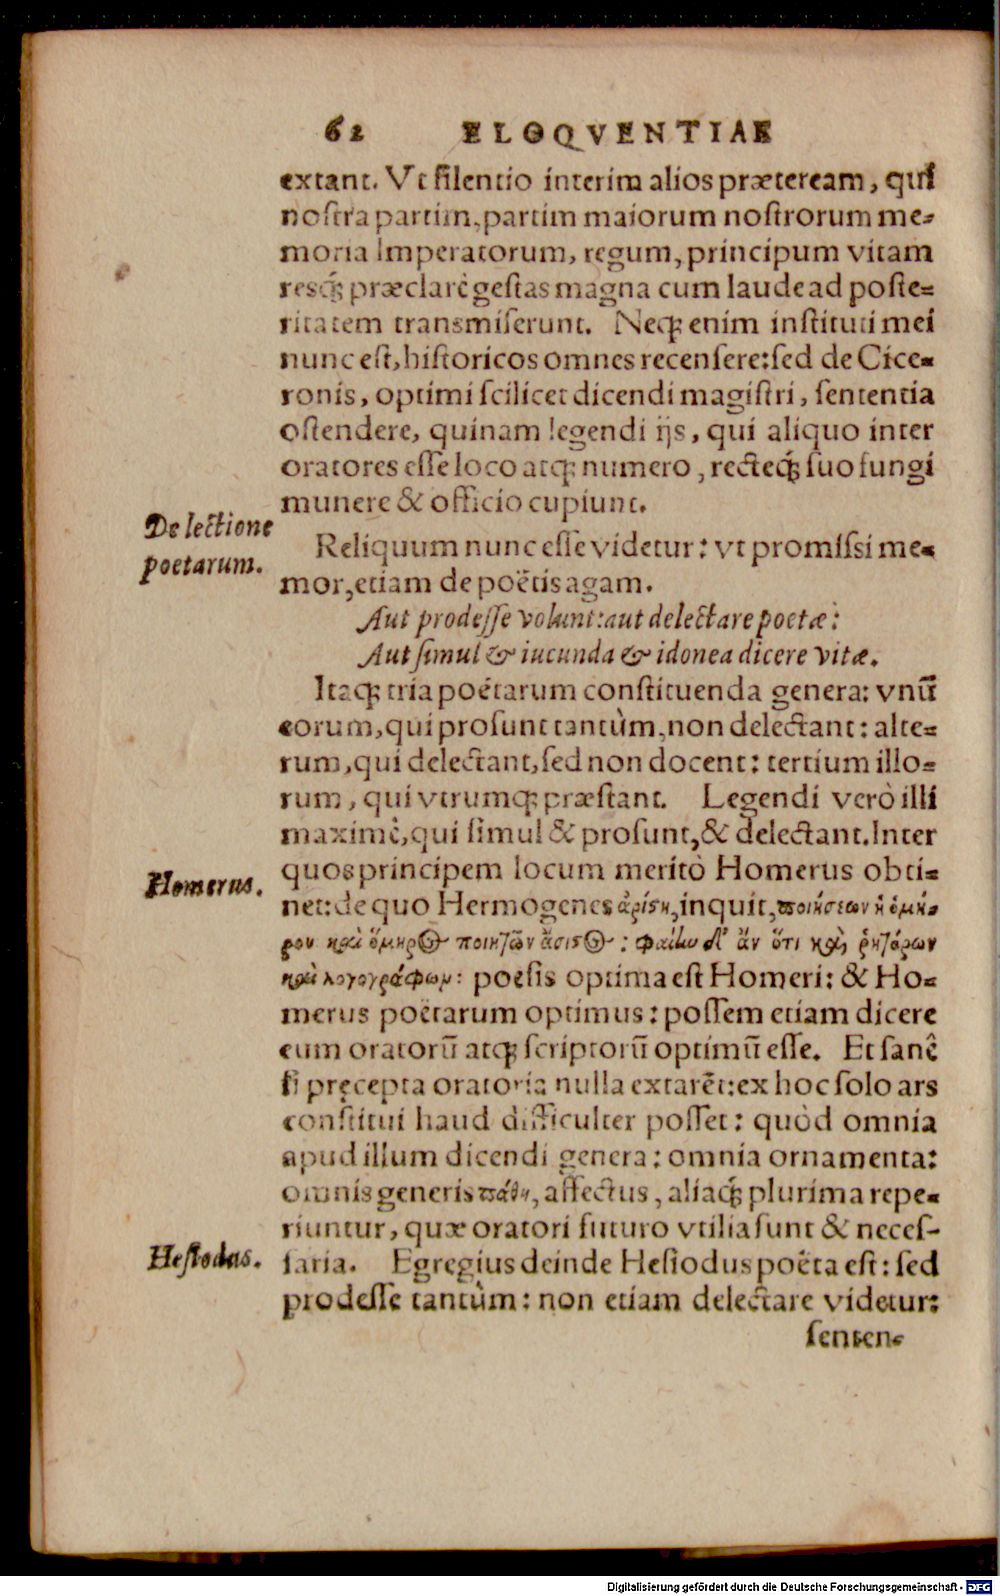 62 ELOQVENTIAE
extant. Vt silentio interim alios præteream, qui
nostra partim, partim maiorum nostrorum me-
moria Imperatorum, regum, principum vitam
resq́; præclarè gestas magna cum laude ad poste-
ritatem transmiserunt. Neq; enim instituti mei
nunc est, historicos omnes recensere: sed de Cice-
ronis, optimi scilicet dicendi magistri, sententia
ostendere, quinam legendi ijs, qui aliquo inter
oratores esse loco atq; numero, recteq́; suo fungi
munere & officio cupiunt.
De lectione
poetarum.
Reliquum nunc esse videtur: vt promissi me-
mor, etiam de poëtis agam.
Aut prodesse volunt: aut delectare poetæ:
Aut simul & iucunda & idonea dicere vitæ.
Itaq; tria poëtarum constituenda genera: vnū
eorum, qui prosunt tantùm, non delectant: alte-
rum, qui delectant, sed non docent: tertium illo-
rum, qui vtrumq; præstant. Legendi verò illi
maximè, qui simul & prosunt, & delectant. Inter
quos principem locum meritò Homerus obti-
Homerus.
net: de quo Hermogenes ἀρίστη, inquit, ποιήσεων ἡ ὁμή-
ρου καὶ ὅμηρος ποιητῶν ἄριστος: φαίην δ' ἂν ὅτι καὶ ῥητόρων
καὶ λογογράφων: poesis optima est Homeri: & Ho-
merus poëtarum optimus: possem etiam dicere
eum oratorū atq; scriptorū optimū esse. Et sanè
si pręcepta oratoria nulla extarēt: ex hoc solo ars
constitui haud difficulter posset: quòd omnia
apud illum dicendi genera: omnia ornamenta:
omnis generis πάθη, affectus, aliaq́; plurima repe-
riuntur, quæ oratori futuro vtilia sunt & neces-
Hesiodus.
saria. Egregius deinde Hesiodus poëta est: sed
prodesse tantùm: non etiam delectare videtur:
senten-
Digitalisierung gefördert durch die Deutsche Forschungsgemeinschaft - DFG